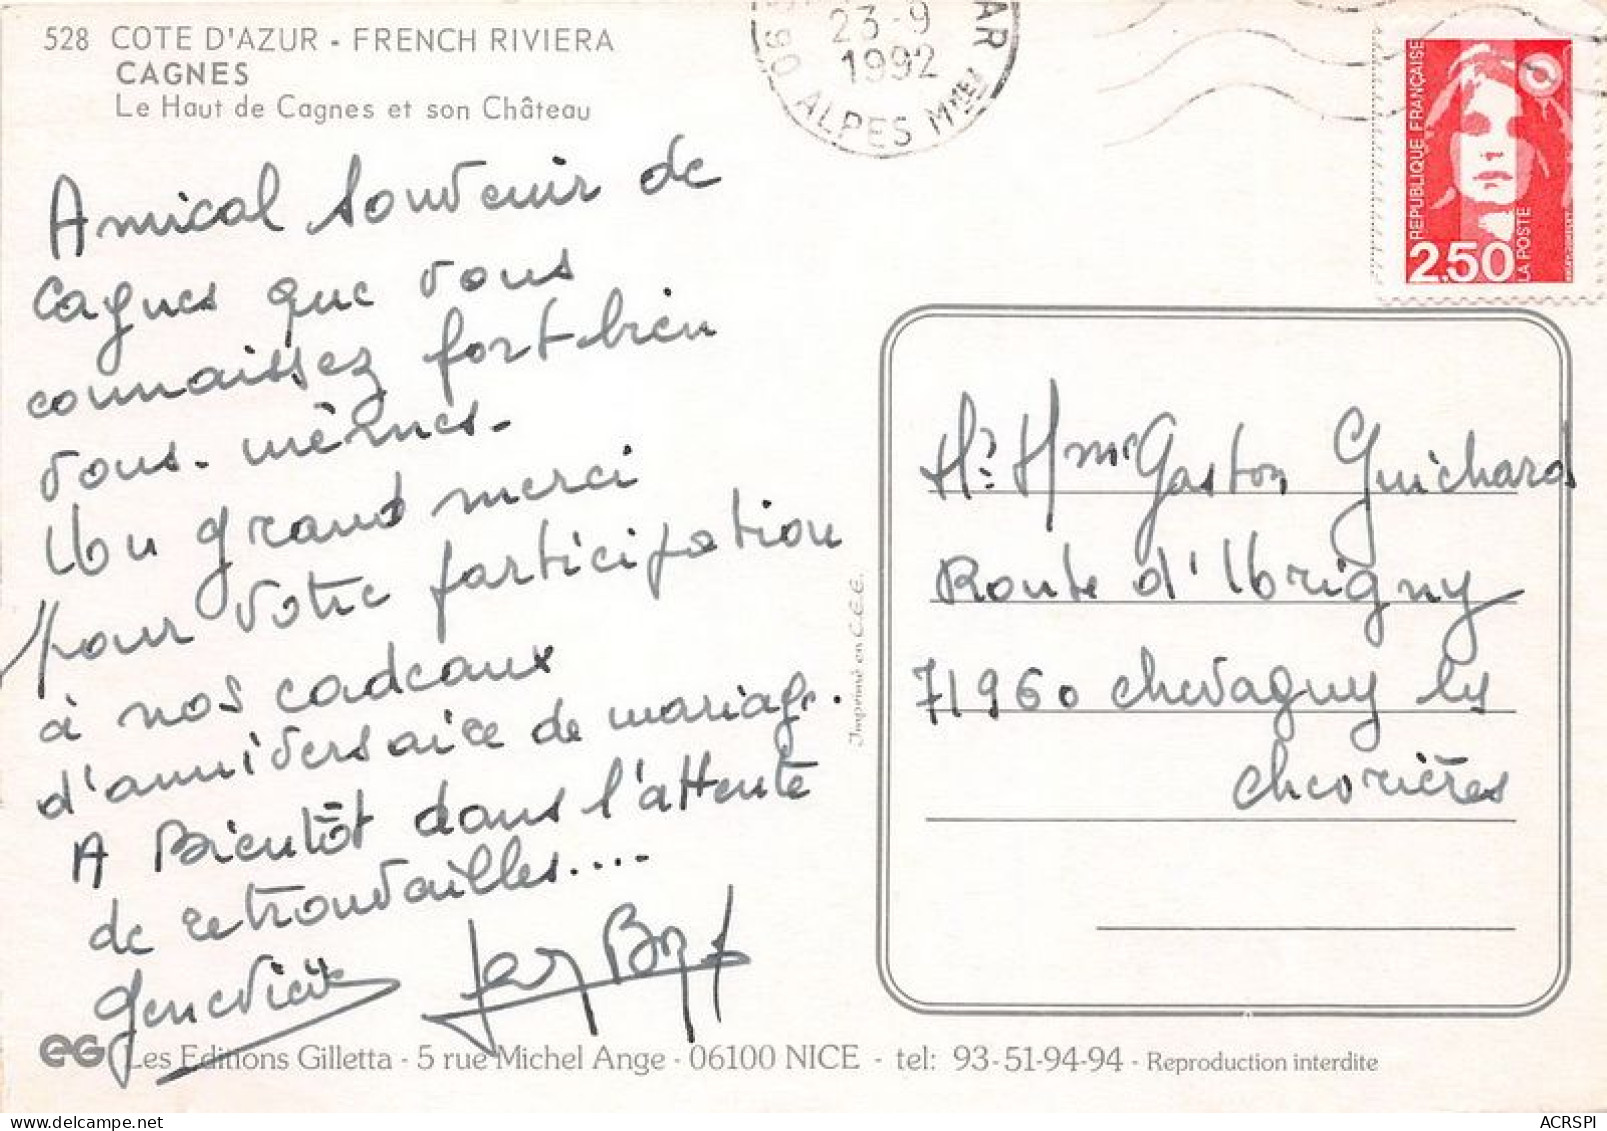 528 COTE D'AZUR - FRENCH RIVIERA
CAGNES
Le Haut de Cagnes et son Château
23-9
1992
06 ALPES Mmes
AR
REPUBLIQUE FRANÇAISE
2,50
LA POSTE
Amical Souvenir de
Cagnes que vous
connaissez fort-bien
vous-mêmes-
Un grand merci
pour votre participation
à nos cadeaux
d'anniversaire de mariage.
A Bientôt dans l'attente
de retrouvailles....
Geneviève
Imprimé en C.E.E.
Mr Mme Gaston Guichard
Route d'Urigny
71960 Chevagny les
Chevrières
eG Les Editions Gilletta - 5 rue Michel Ange - 06100 NICE - tel: 93-51-94-94 - Reproduction interdite
ACRSPI